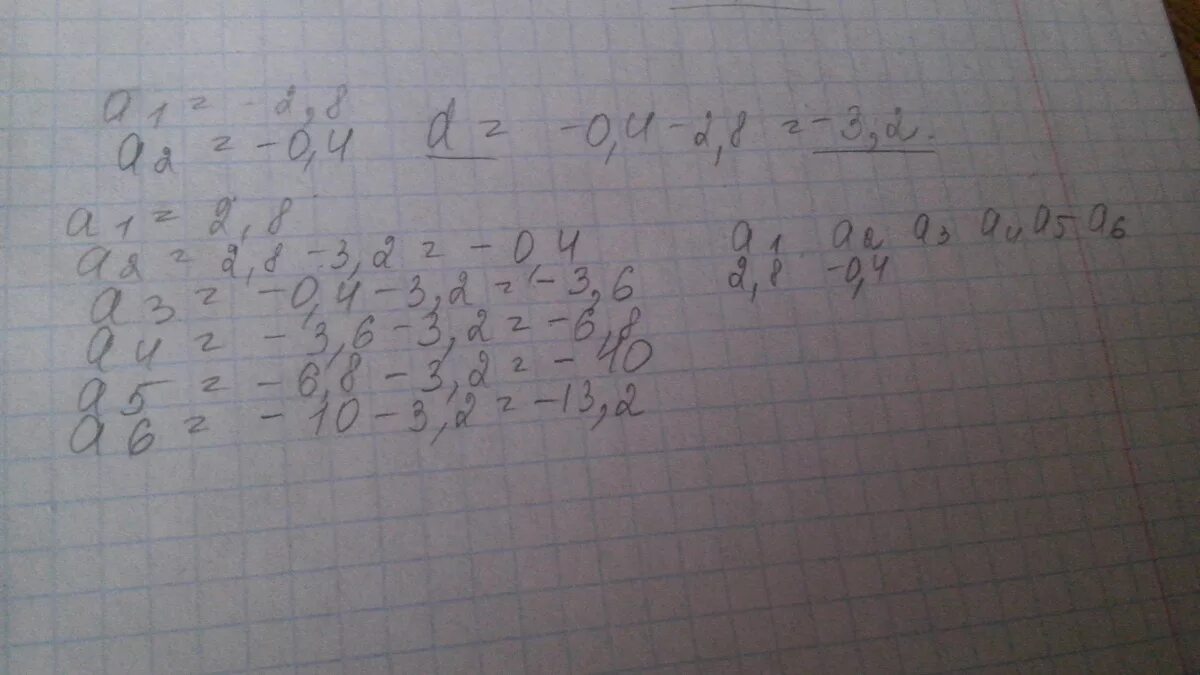 a1 = -2,8
a2 = -0,4 d = -0,4-2,8 = -3,2.
a1 = 2,8
a2 = 2,8-3,2 = -0,4
a3 = -0,4-3,2 = -3,6
a4 = -3,6-3,2 = -6,8
a5 = -6,8-3,2 = -10
a6 = -10-3,2 = -13,2
a1 a2 a3 a4 a5 a6
2,8 -0,4